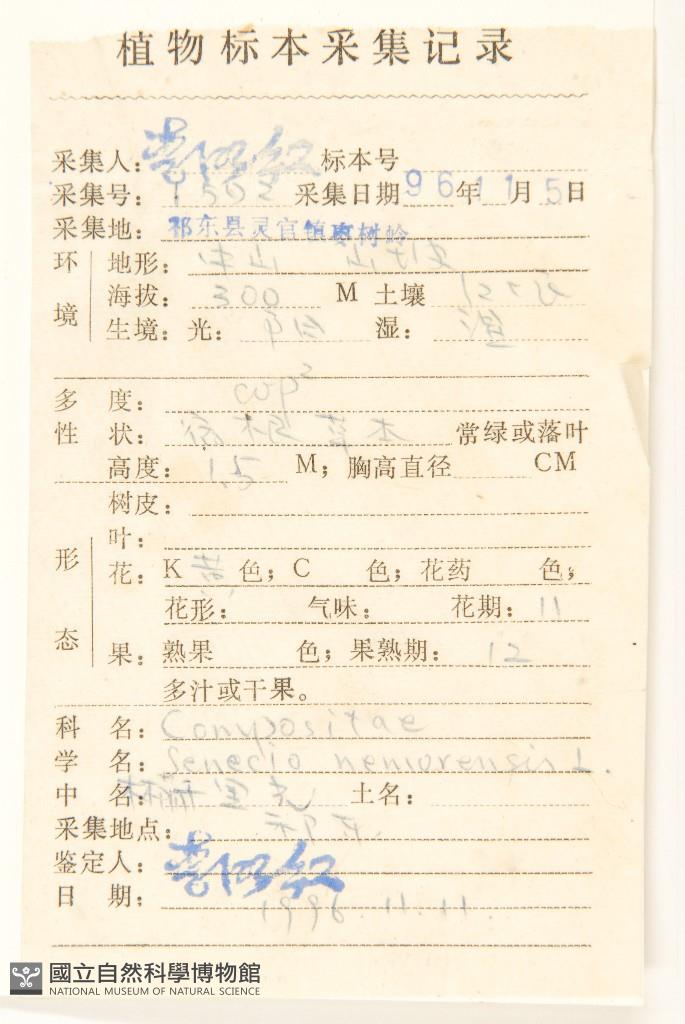 植物标本采集记录
采集人: 标本号
采集号: 1502 采集日期 96 年 11 月 5 日
采集地: 祁东县灵官镇枣树岭
环境
地形: 中山
海拔: 300 M 土壤
生境: 光: 湿:
多度: cop²
性状: 草本 常绿或落叶
高度: 1.5 M; 胸高直径 CM
树皮:
形态
叶:
花: K 黄 色; C 色; 花药 色;
花形: 气味: 花期: 11
果: 熟果 色; 果熟期: 12
多汁或干果。
科名: Compositae
学名: Senecio nemorensis L.
中名: 林 里光 土名:
采集地点: 祁东.
鉴定人:
日期; 1996.11.11.
國立自然科學博物館
NATIONAL MUSEUM OF NATURAL SCIENCE